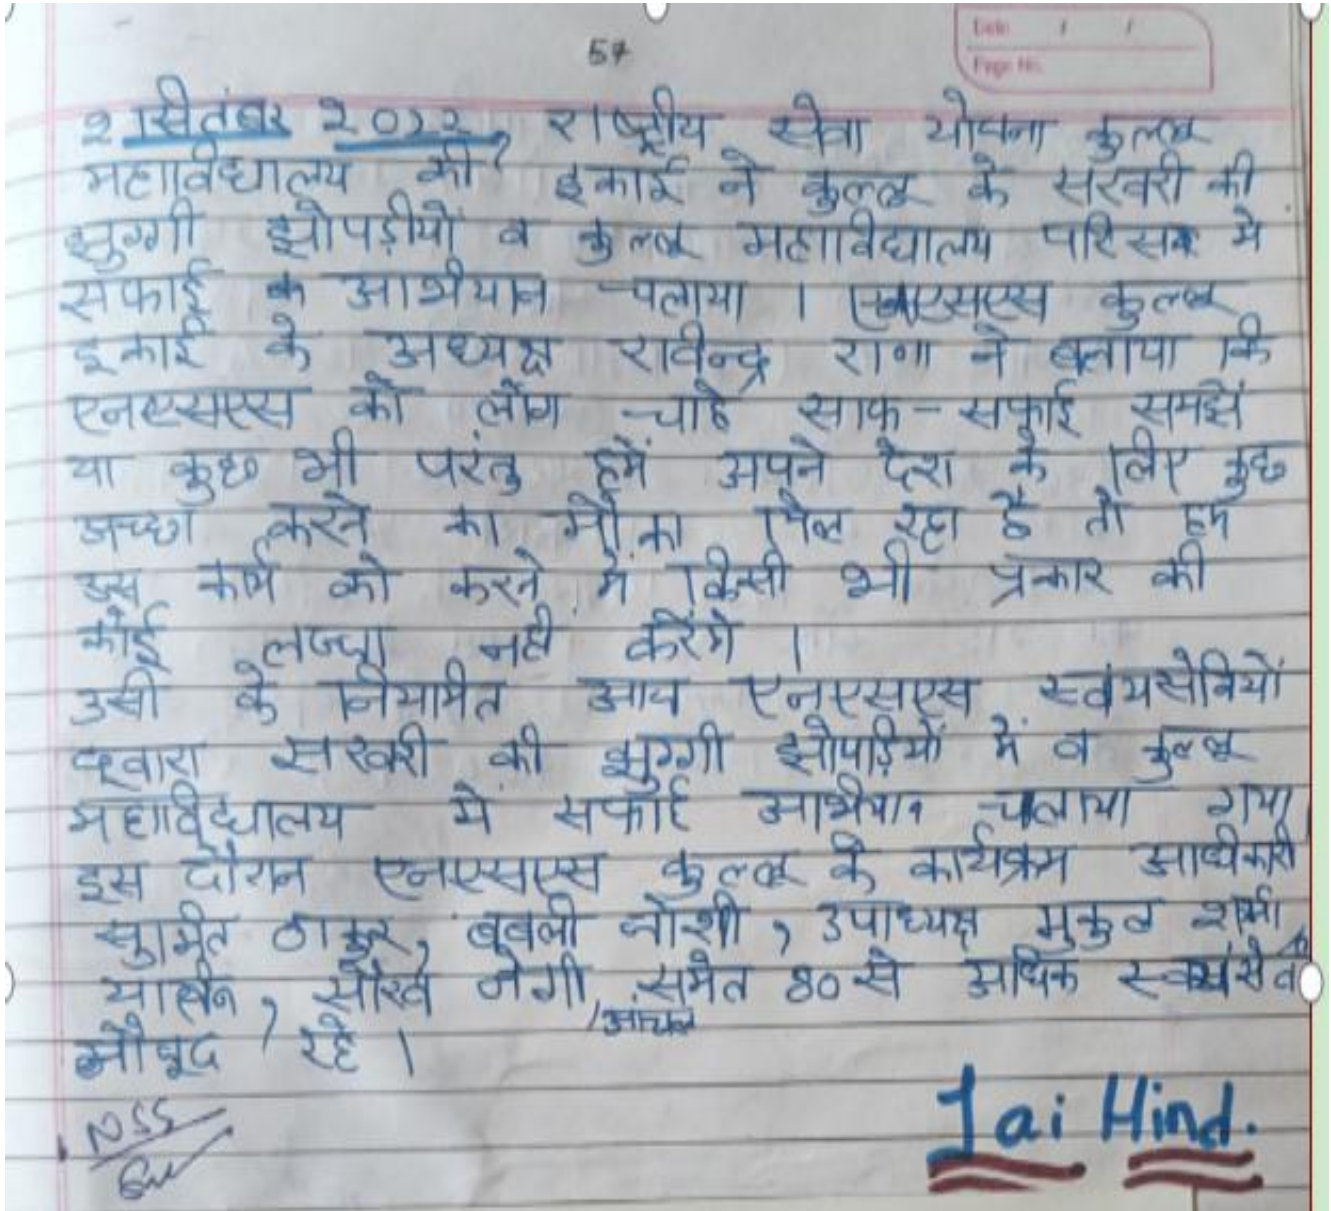 57
Date / /
Page No.
2 सितंबर 2022, राष्ट्रीय सेवा योजना कुल्लू
महाविद्यालय की इकाई ने कुल्लू के सरवरी की
झुग्गी झोपड़ीयों व कुल्लू महाविद्यालय परिसर मे
सफाई अभियान चलाया । एनएसएस कुल्लू
इकाई के अध्यक्ष रविन्द्र राणा ने बताया कि
एनएसएस को लोग चाहे साफ - सफाई समझें
या कुछ भी परंतु हमें अपने देश के लिए कुछ
अच्छा करने का मौका मिल रहा है तो हम
इस कार्य को करने में किसी भी प्रकार की
कोई लज्जा नही करेंगे ।
उसी के नियमित आज एनएसएस स्वंयसेवियों
द्वारा सरवरी की झुग्गी झोपड़ियों में व कुल्लू
महाविद्यालय मे सफाई अभियान चलाया गया
इस दौरान एनएसएस कुल्लू के कार्यक्रम अधिकारी
सुमित ठाकुर, बबली जोशी, उपाध्यक्ष मुकुल शर्मा,
नेगी, आंचल समेत 80 से अधिक
मौजूद रहे ।
NSS
Jai Hind.